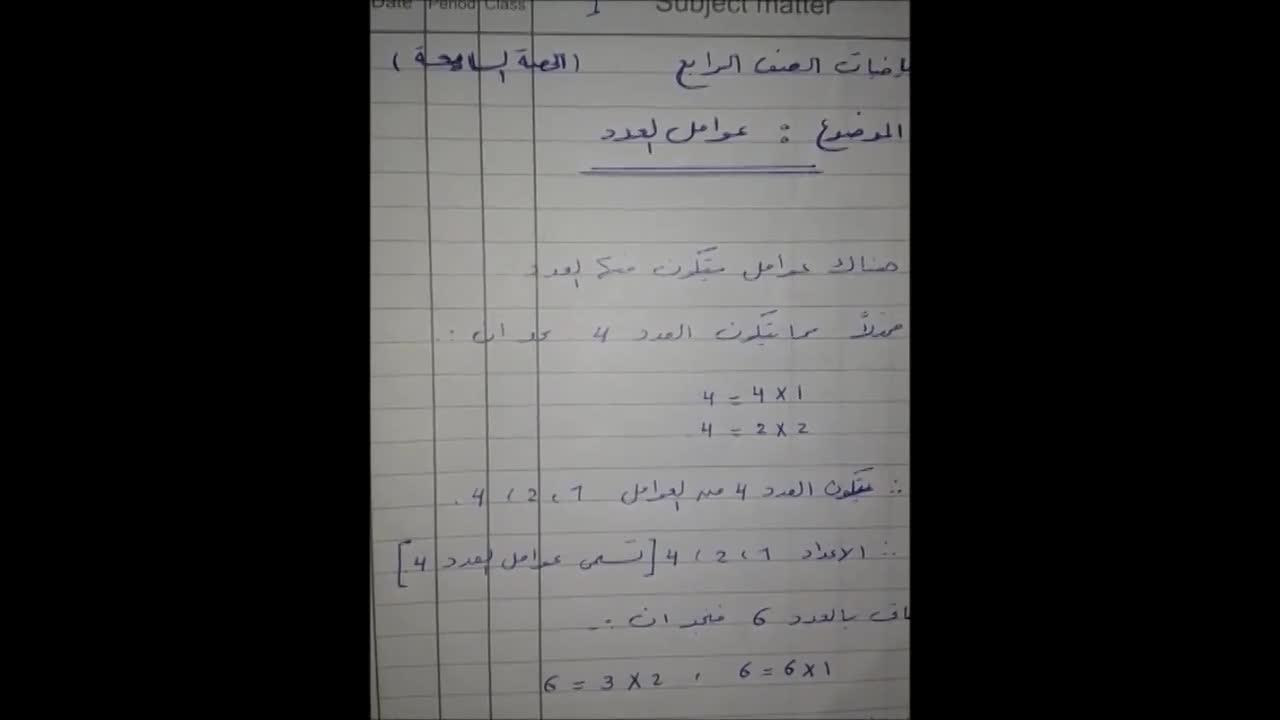 Date Period Class Subject matter
ياضيات الصف الرابع (الحصة السابعة)
الموضوع : عوامل العدد
هناك عوامل يتكون منها العدد
مثلاً مما يتكون العدد 4 نجد ان :.
4 = 4 × 1
4 = 2 × 2
∴ يتكون العدد 4 من العوامل 1 ، 2 ، 4 .
∴ الاعداد 1 ، 2 ، 4 [ تسمى عوامل العدد 4 ]
بالعدد 6 فنجد ان :-
6 = 6 × 1 ، 6 = 3 × 2